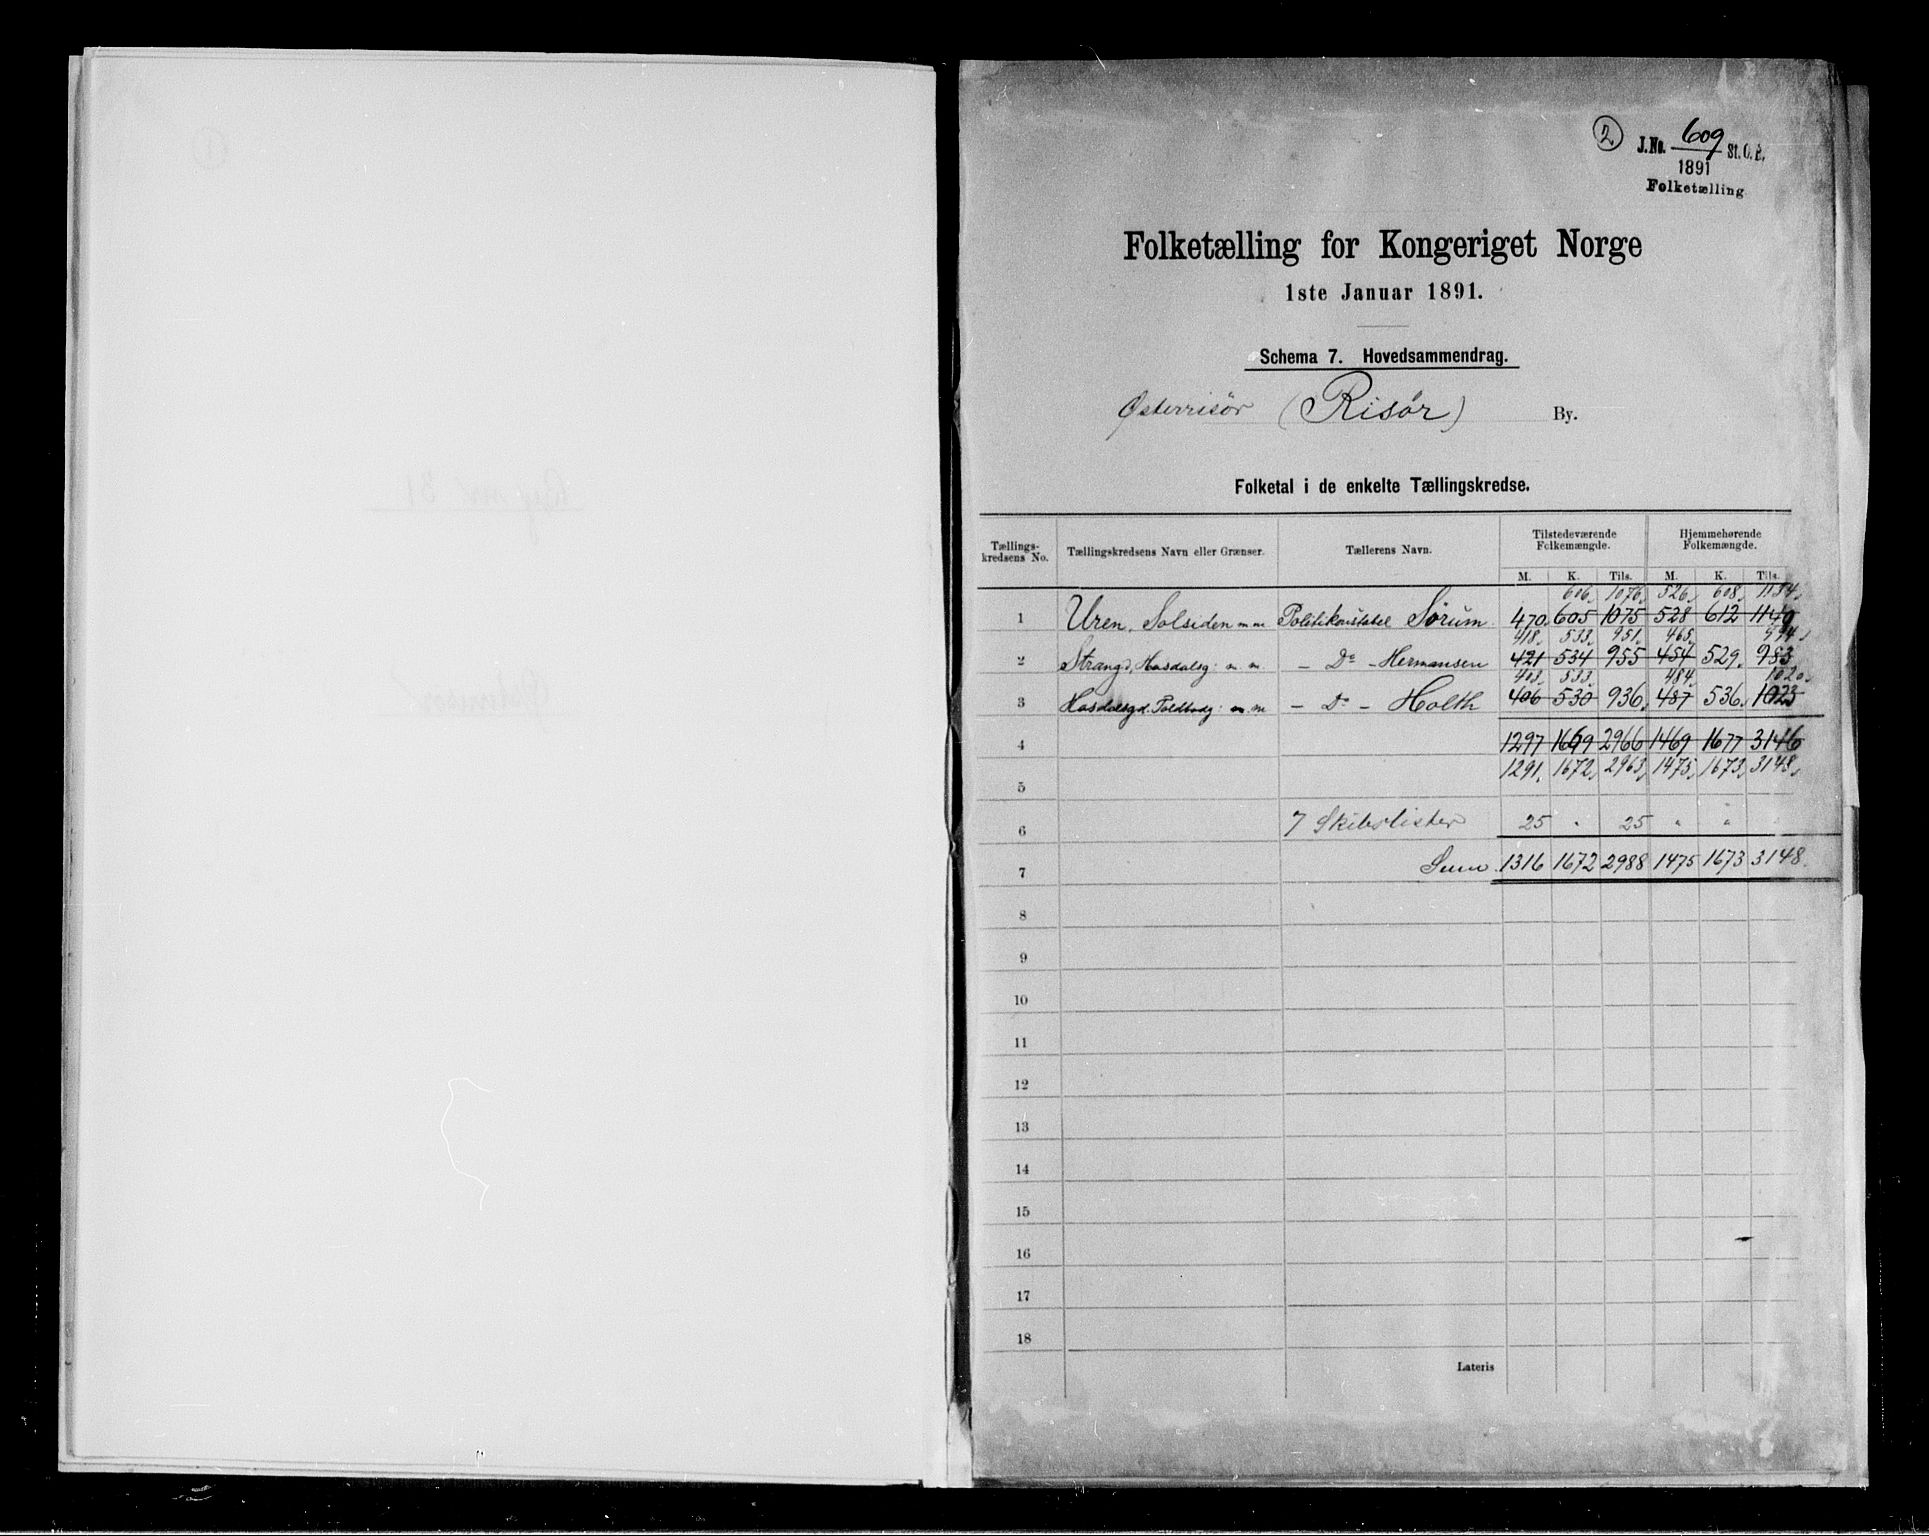 2 J.No. 609 St. C. B.
1891
Folketælling
Folketælling for Kongeriget Norge
1ste Januar 1891.
Schema 7. Hovedsammendrag.
Østerrisör (Risör) By.
Folketal i de enkelte Tællingskredse.
Tællingskredsens No. Tællingskredsens Navn eller Grænser. Tællerens Navn. Tilstedeværende Folkemængde. Hjemmehørende Folkemængde.
M. K. Tils. M. K. Tils.
606, 1076, 526, 608, 1134,
1 Uren, Solsiden m m Politikonstabel Sörum 470, 605 1075 528 612 1140
418, 533, 951, 465, 994,
2 Strangd, Hasdalsg. m. m. — Do — Hermansen 421 534 955 454 529, 983
403, 533, 484, 1020,
3 Hasdalsgd. Toldbodg. m. m — Do — Holth 406 530 936, 487 536, 1023
4 1297 1669 2966 1469 1677 3146
1291, 1672, 2963, 1475, 1673, 3148,
5
6 7 Skibslister 25 " 25 " "
7 Sum 1316 1672 2988 1475 1673 3148.
8
9
10
11
12
13
14
15
16
17
18
Lateris